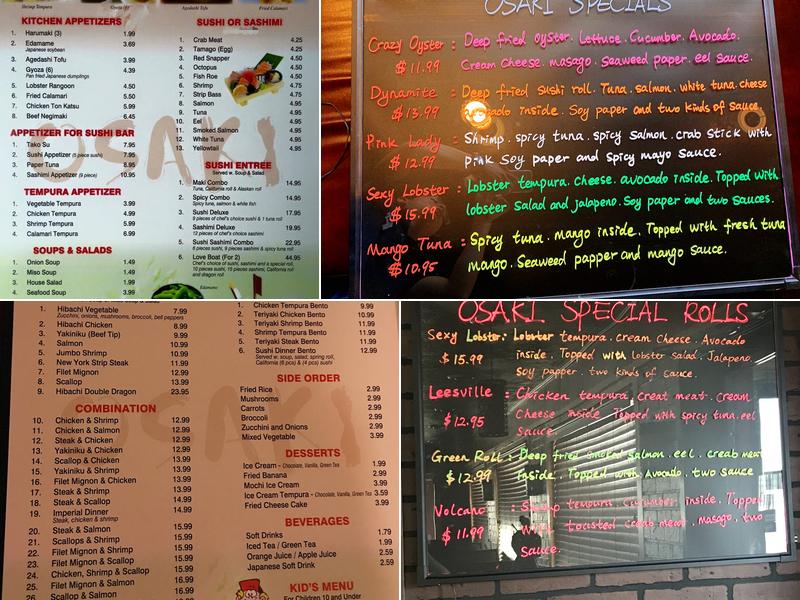 Shrimp Tempura Gyoza (6) Agedashi Tofu Fried Calamari
KITCHEN APPETIZERS
1. Harumaki (3) 1.99
2. Edamame 3.69
Japanese soybean
3. Agedashi Tofu 3.99
4. Gyoza (6) 4.39
Pan fried Japanese dumplings
5. Lobster Rangoon 4.50
6. Fried Calamari 5.50
7. Chicken Ton Katsu 5.99
8. Beef Negimaki 6.45
APPETIZER FOR SUSHI BAR
1. Tako Su 7.95
2. Sushi Appetizer (5 piece sush) 7.95
3. Paper Tuna 8.95
4. Sashimi Appetizer (9 piece) 10.95
TEMPURA APPETIZER
1. Vegetable Tempura 3.99
2. Chicken Tempura 4.99
3. Shrimp Tempura 5.99
4. Calamari Tempura 6.99
SOUPS & SALADS
1. Onion Soup 1.49
2. Miso Soup 1.49
3. House Salad 1.99
4. Seafood Soup 3.99
SUSHI OR SASHIMI
1. Crab Meat 4.25
2. Tamago (Egg) 4.25
3. Red Snapper 4.50
4. Octopus 4.50
5. Fish Roe 4.50
6. Shrimp 4.75
7. Strip Bass 4.75
8. Salmon 4.95
9. Tuna 4.95
10. Eel 4.95
11. Smoked Salmon 4.95
12. White Tuna 4.95
13. Yellowtail 4.95
SUSHI ENTREE
Served w. Soup & Salad
1. Maki Combo 14.95
Tuna, California roll & Alaskan roll
2. Spicy Combo 14.95
Spicy tuna, salmon & white fish
3. Sushi Deluxe 17.95
9 pieces of chef's choice sushi & 1 tuna roll
4. Sashimi Deluxe 19.95
12 pieces of chef's choice sashimi
5. Sushi Sashimi Combo 22.95
6 pieces sushi, 9 pieces sashimi & spicy tuna roll
6. Love Boat (For 2) 44.95
Chef's choice of sushi, sashimi and a special roll,
10 pieces sushi, 15 pieces sashimi, California roll
and dragon roll
Edamame
OSAKI
OSAKI SPECIALS
Crazy Oyster : Deep fried oyster. Lettuce. Cucumber. Avocado.
$11.99 Cream Cheese. masago. Seaweed paper. eel sauce.
Dynamite : Deep fried sushi roll. Tuna. salmon. white tuna. cheese
$13.99 avocado inside. Soy paper and two kinds of sauce.
Pink Lady : Shrimp. spicy tuna. spicy salmon. crab stick with
$12.99 pink Soy paper and spicy mayo sauce.
Sexy Lobster : Lobster tempura. cheese. avocado inside. Topped with
$15.99 lobster Salad and jalapeno. Soy paper and two sauces.
Mango Tuna : Spicy tuna. mango inside. Topped with fresh tuna
$10.95 mango. Seaweed papper and mango sauce.
1. Hibachi Vegetable 7.99
Zucchini, onions, mushrooms, broccoli, bell peppers
2. Hibachi Chicken 8.99
3. Yakiniku (Beef Tip) 9.99
4. Salmon 10.99
5. Jumbo Shrimp 10.99
6. New York Strip Steak 11.99
7. Filet Mignon 12.99
8. Scallop 13.99
9. Hibachi Double Dragon 23.95
COMBINATION
10. Chicken & Shrimp 12.99
11. Chicken & Salmon 12.99
12. Steak & Chicken 12.99
13. Yakiniku & Chicken 12.99
14. Scallop & Chicken 13.99
15. Yakiniku & Shrimp 13.99
16. Filet Mignon & Chicken 13.99
17. Steak & Shrimp 13.99
18. Steak & Scallop 14.99
19. Imperial Dinner 14.99
Steak, chicken & shrimp
20. Steak & Salmon 15.99
21. Scallops & Shrimp 15.99
22. Filet Mignon & Shrimp 15.99
23. Filet Mignon & Scallop 15.99
24. Chicken, Shrimp & Scallop 15.99
25. Filet Mignon & Salmon 16.99
26. Scallop & Salmon 16.99
Chicken Tempura Bento 9.99
2. Teriyaki Chicken Bento 10.99
3. Teriyaki Shrimp Bento 11.99
4. Shrimp Tempura Bento 11.99
5. Teriyaki Steak Bento 11.99
6. Sushi Dinner Bento 12.99
Served w. soup, salad, spring roll,
California (6 pcs) & (4 pcs) sushi
SIDE ORDER
Fried Rice 2.99
Mushrooms 2.99
Carrots 2.99
Broccoli 2.99
Zucchini and Onions 2.99
Mixed Vegetable 3.99
DESSERTS
Ice Cream - Chocolate, Vanilla, Green Tea 1.99
Fried Banana 2.99
Mochi Ice Cream 3.99
Ice Cream Tempura - Chocolate, Vanilla, Green Tea 3.59
Fried Cheese Cake 3.99
BEVERAGES
Soft Drinks 1.79
Iced Tea / Green Tea 1.99
Orange Juice / Apple Juice 2.59
Japanese Soft Drink 2.59
KID'S MENU
For Children 10 and Under
OSAKI
OSAKI SPECIAL ROLLS
Sexy Lobster: Lobster tempura. cream cheese. Avocado
$15.99 inside. Topped with lobster Salad. Jalapeno.
Soy papper. two kinds of Sauce.
Leesville : Chicken tempura. creat meat. cream
$12.95 cheese inside. Topped with spicy tuna. eel
sauce.
Green Roll : Deep fried smoked salmon. eel. creab meat
$12.99 inside. Topped with Avocado. two sauce
Volcano : Shrimp tempura. cucumber inside. Topped
$11.99 with toasted creab meat. masago. two
Sauce.